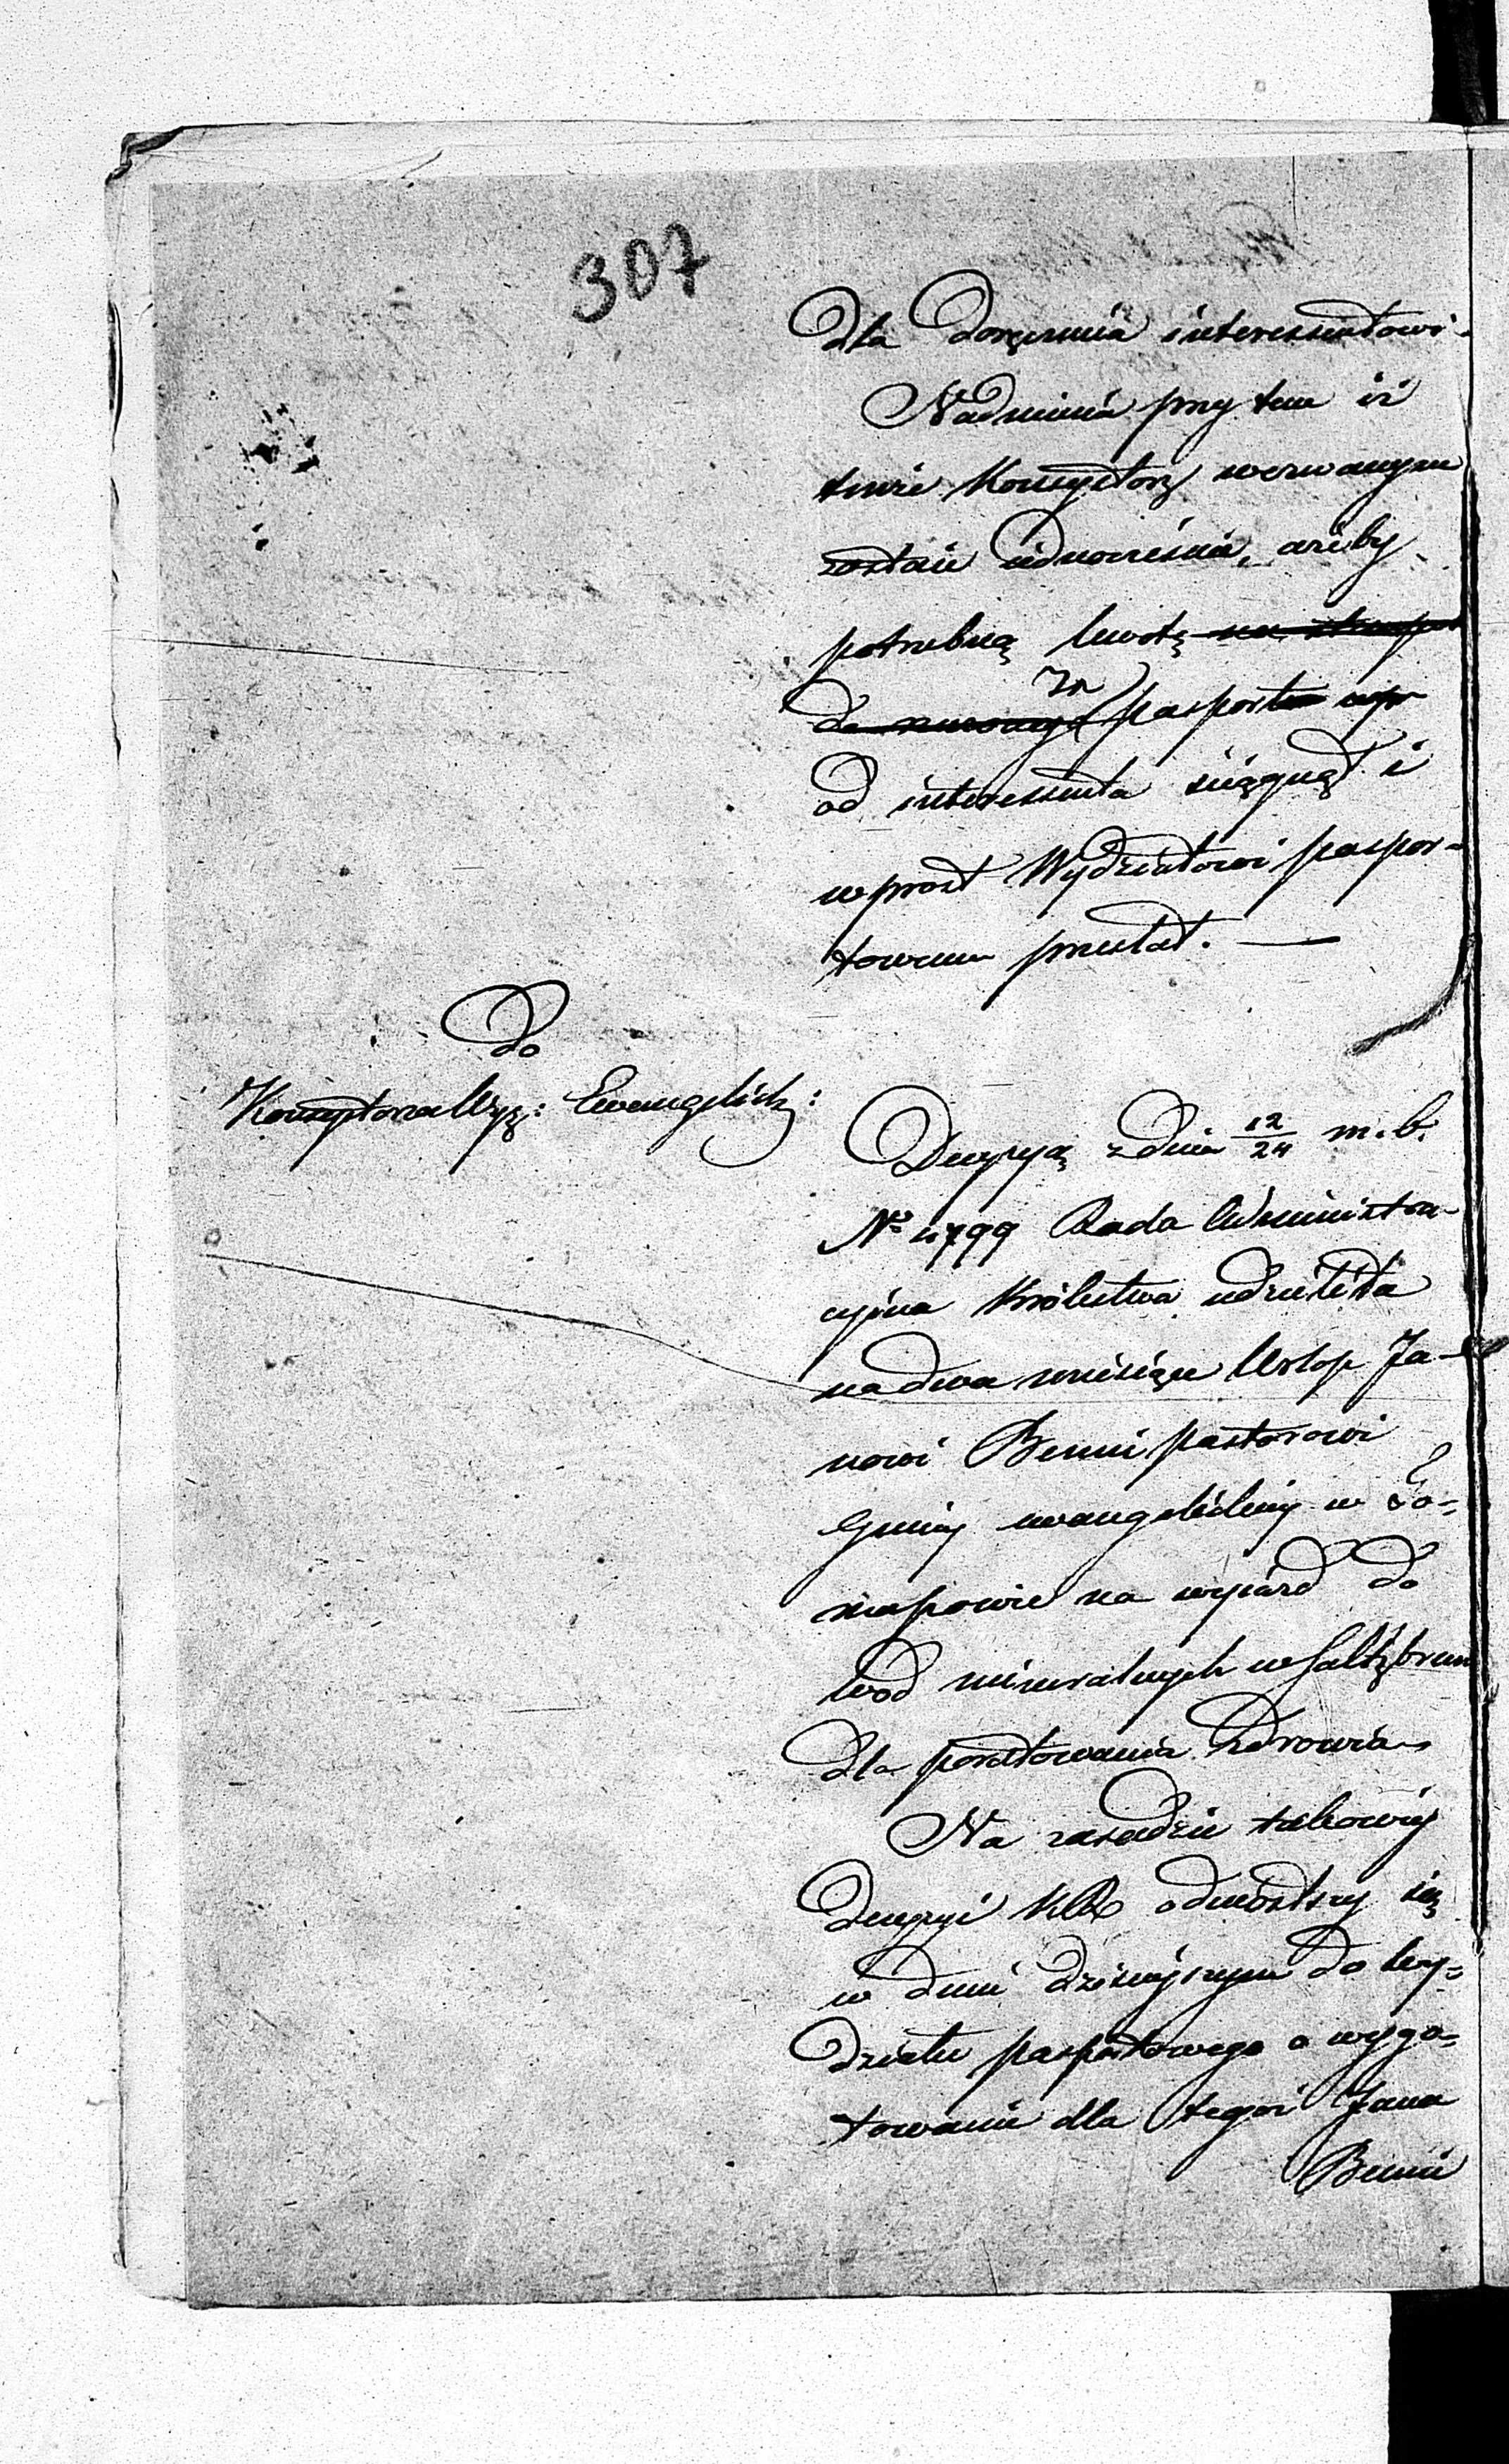 307
dla doręczenia interessentowi.
Nadmienia przy tem iż
tenże Konsystorz wezwanym
zostaie iednocześnie, ażeby
potrzebną kwotę na stempel
za
do nowego pasportu
od interessenta ściągnął i
wprost Wydziałowi paspor-
towemu przesłał. —
Do
Konsystorza Wyż: Ewangelick:
Decyzyą z dnia 12/24 m. b.
No 4799 Rada Administra-
cyina Królestwa udzieliła
na dwa miesiące Urlop Ja-
nowi Benni pastorowi
Gminy ewangelickiey w To-
maszowie na wyiazd do
wód mineralnych w Saltzbrun
dla poratowania zdrowia
Na zasadzie takowey
Decyzyi KR odniosłszy się
w dniu dzisieyszym do Wy-
działu pasportowego o wygo-
towanie dla tegoż Jana
Benni